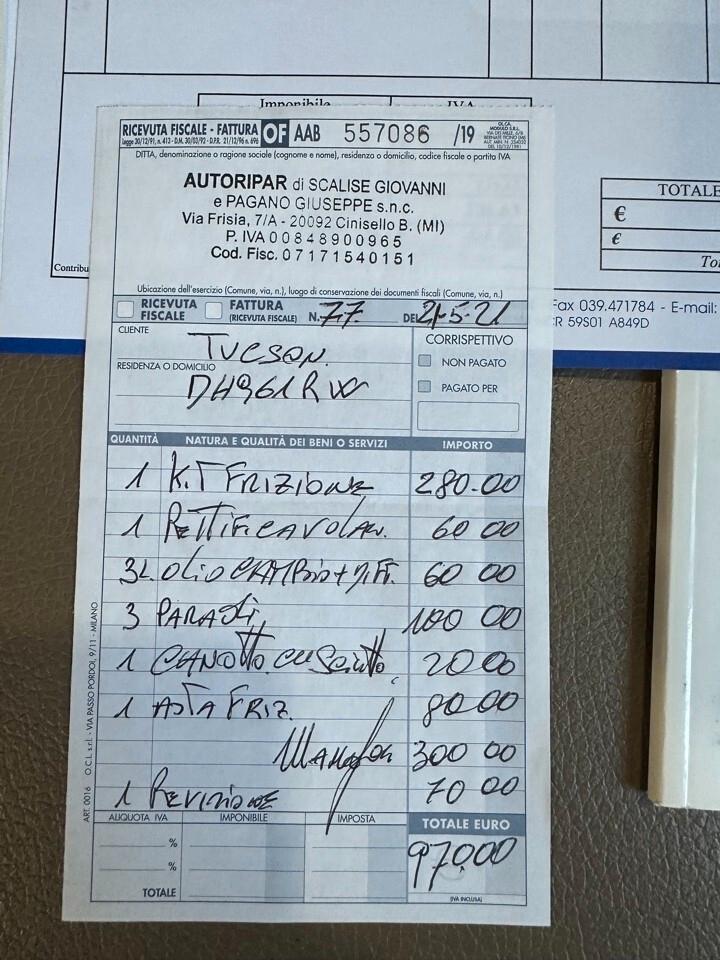 Imponibile IVA
TOTALE
€
€
Contribu
Fax 039.471784 - E-mail:
CR 59S01 A849D
RICEVUTA FISCALE - FATTURA OF AAB 557086 /19
Legge 30/12/91, n. 413 - D.M. 30/03/92 - D.P.R. 21/12/96 n. 696
DITTA, denominazione o ragione sociale (cognome e nome), residenza o domicilio, codice fiscale o partita IVA
AUTORIPAR di SCALISE GIOVANNI
e PAGANO GIUSEPPE s.n.c.
Via Frisia, 7/A - 20092 Cinisello B. (MI)
P. IVA 00848900965
Cod. Fisc. 07171540151
Ubicazione dell'esercizio (Comune, via, n.), luogo di conservazione dei documenti fiscali (Comune, via, n.)
RICEVUTA FISCALE FATTURA (RICEVUTA FISCALE) N. 77 DEL 21-5-21
CLIENTE TUCSON
RESIDENZA O DOMICILIO
CORRISPETTIVO
NON PAGATO
PAGATO PER
QUANTITÀ NATURA E QUALITÀ DEI BENI O SERVIZI IMPORTO
1 KIT FRIZIONE 280.00
1 RETTIFICA VOLAN. 60 00
3L. OLIO CAMBIO + DIFF. 60 00
3 100 00
1 20 00
1 ASTA FRIZ. 80 00
300 00
1 REVISIONE 70 00
ALIQUOTA IVA IMPONIBILE IMPOSTA TOTALE EURO
%
%
97000
TOTALE
(IVA INCLUSA)
ART. 0016 O.C.L. s.r.l. - VIA PASSO PORDOI, 9/11 - MILANO